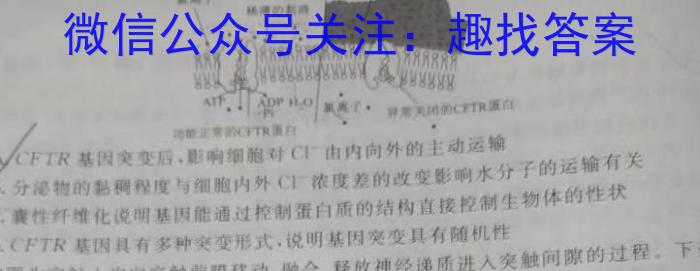 稀薄的黏液
微信公众号关注：趣找答案
ATP ADP H₂O 氯离子 异常关闭的CFTR蛋白
+Pi
功能正常的CFTR蛋白
CFTR基因突变后,影响细胞对Cl⁻由内向外的主动运输
分泌物的黏稠程度与细胞内外Cl⁻浓度差的改变影响水分子的运输有关
囊性纤维化说明基因能通过控制蛋白质的结构直接控制生物体的性状
CFTR基因具有多种突变形式,说明基因突变具有随机性
融合、释放神经递质进入突触间隙的过程。下